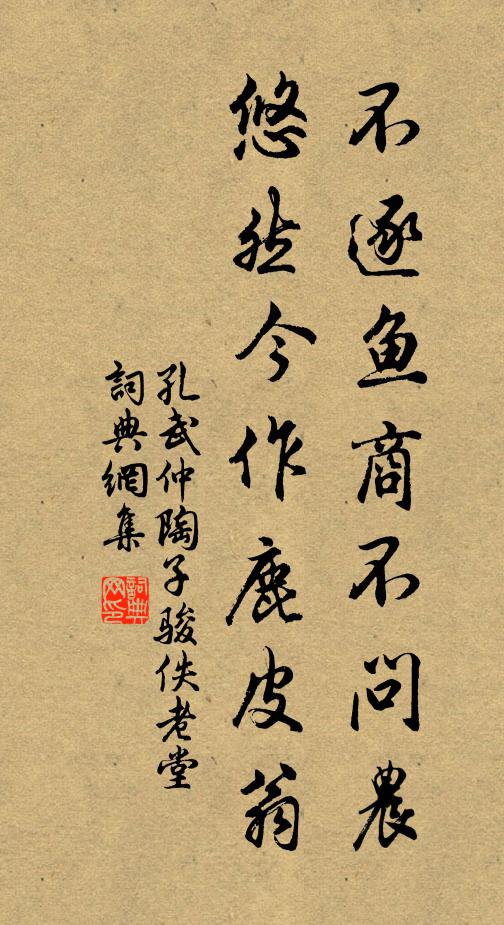 不逐鱼商不问農
悠然今作鹿皮翁
孔武仲陶子骏佚老堂
詞典網集
詞典网印